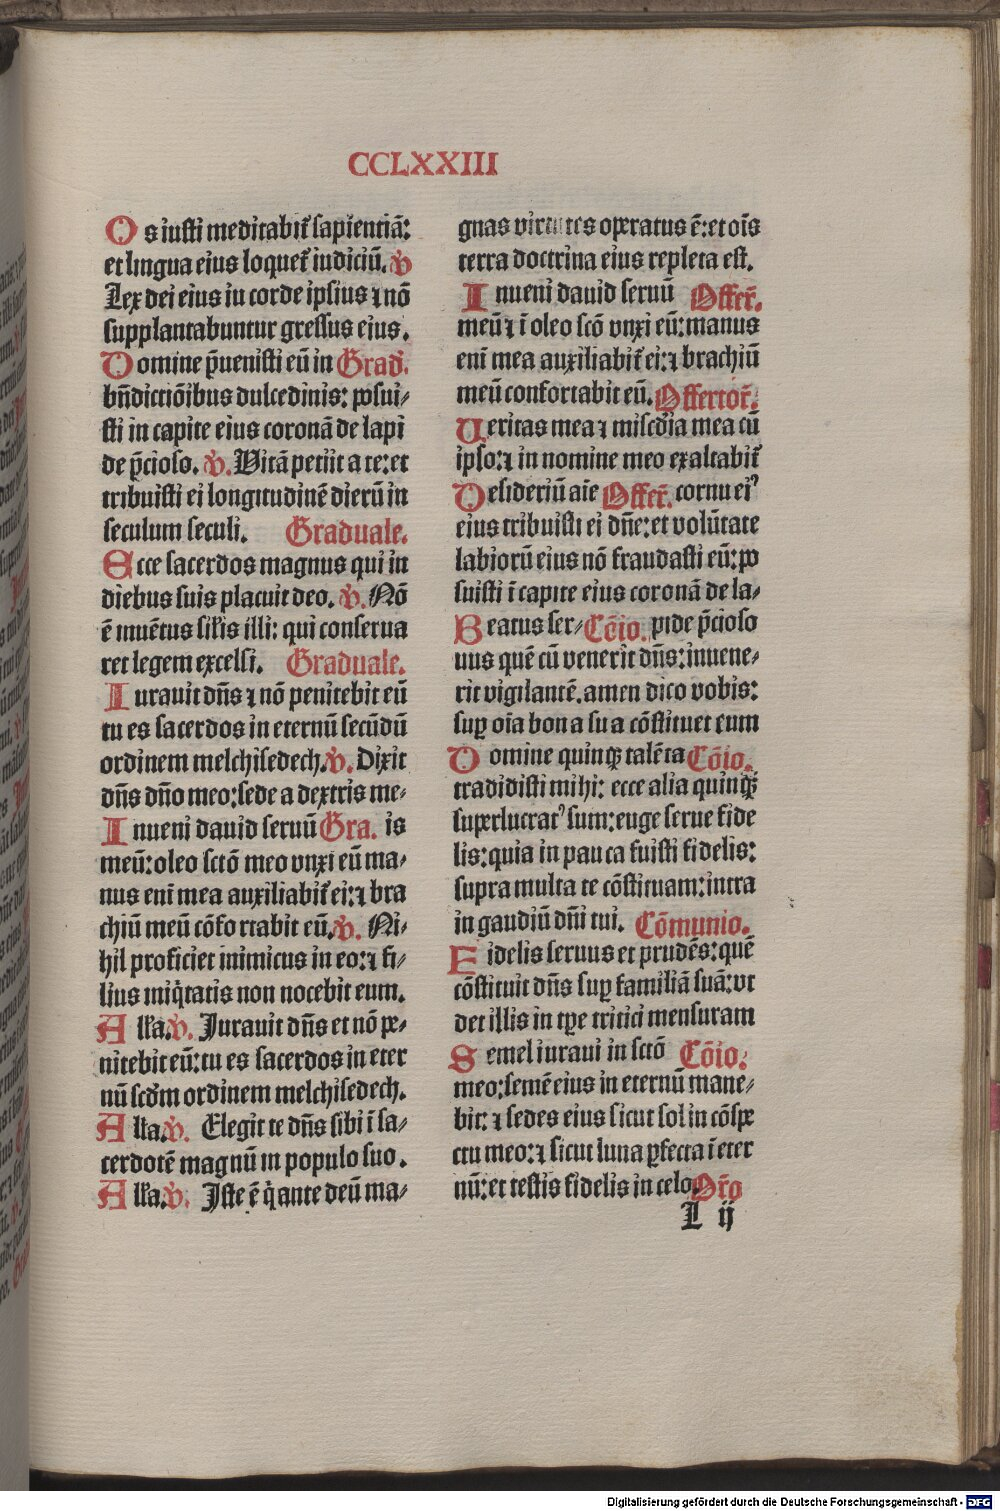 CCLXXIII
Os iusti meditabit᷑ sapientiā:
et lingua eius loquet᷑ iudiciū. ℣
Lex dei eius in corde ipsius ⁊ nō
supplantabuntur gressus eius.
Domine p̄uenisti eū in Grad᷑.
bn̄dictiōibus dulcedinis: posui⸗
sti in capite eius coronā de lapi
de p̄cioso. ℣. Vitā petiit a te: et
tribuisti ei longitudinē dierū in
seculum seculi. Graduale.
Ecce sacerdos magnus qui in
diebus suis placuit deo. ℣. Nō
ē inuētus sil̓is illi: qui conserua
ret legem excelsi. Graduale.
Iurauit dn̄s ⁊ nō penitebit eū
tu es sacerdos in eternū secūdū
ordinem melchisedech. ℣. Dixit
dn̄s dn̄o meo: sede a dextris me⸗
Inueni dauid seruū Gra. is
meū: oleo sctō meo vnxi eū ma⸗
nus eni̅ mea auxiliabit᷑ ei: ⁊ bra
chiū meū cōfortabit eū. ℣. Ni⸗
hil proficiet inimicus in eo: ⁊ fi⸗
lius miq̇tatis non nocebit eum.
All̓a. ℣. Jurauit dn̄s et nō pe⸗
nitebit eū: tu es sacerdos in eter
nū scd̓m ordinem melchisedech.
All̓a. ℣. Elegit te dn̄s sibi ī sa⸗
cerdotē magnū in populo suo.
All̓a. ℣. Iste ē q̇ ante deū ma⸗
gnas virtutes operatus ē: et oīs
terra doctrina eius repleta est.
Inueni dauid seruū Offer᷑.
meū ⁊ ī oleo scō vnxi eū: manus
eni̅ mea auxiliabit᷑ ei: ⁊ brachiū
meū confortabit eū. Offertor᷑.
Veritas mea ⁊ misc̄dia mea cū
ipso: ⁊ in nomine meo exaltabit᷑
Desideriū aīe Offer᷑. cornu ei᷒
eius tribuisti ei dn̄e: et volūtate
labiorū eius nō fraudasti eū: po
suisti ī capite eius coronā de la⸗
Beatus ser⸗ Cōio. pide p̄cioso
uus quē cū venerit dn̄s: inuene⸗
rit vigilantē. amen dico vobis:
sup̱ oīa bona sua cōstituet eum
Domine quinqꝫ talēta Cōio.
tradidisti mihi: ecce alia quinqꝫ
superlucrat᷒ sum: euge serue fide
lis: quia in pauca fuisti fidelis:
supra multa te cōstituam: intra
in gaudiū dn̄i tui. Cōmunio.
Fidelis seruus et prudēs: quē
cōstituit dn̄s sup̱ familiā suā: vt
det illis in tp̱e tritici mensuram
Semel iuraui in sctō Cōio.
meo: semē eius in eternū mane⸗
bit: ⁊ sedes eius sicut sol in cōspe
ctu meo: ⁊ sicut luna p̱fecta ī eter
nū: et testis fidelis in celo. Or̄o
L ij
Digitalisierung gefördert durch die Deutsche Forschungsgemeinschaft - DFG